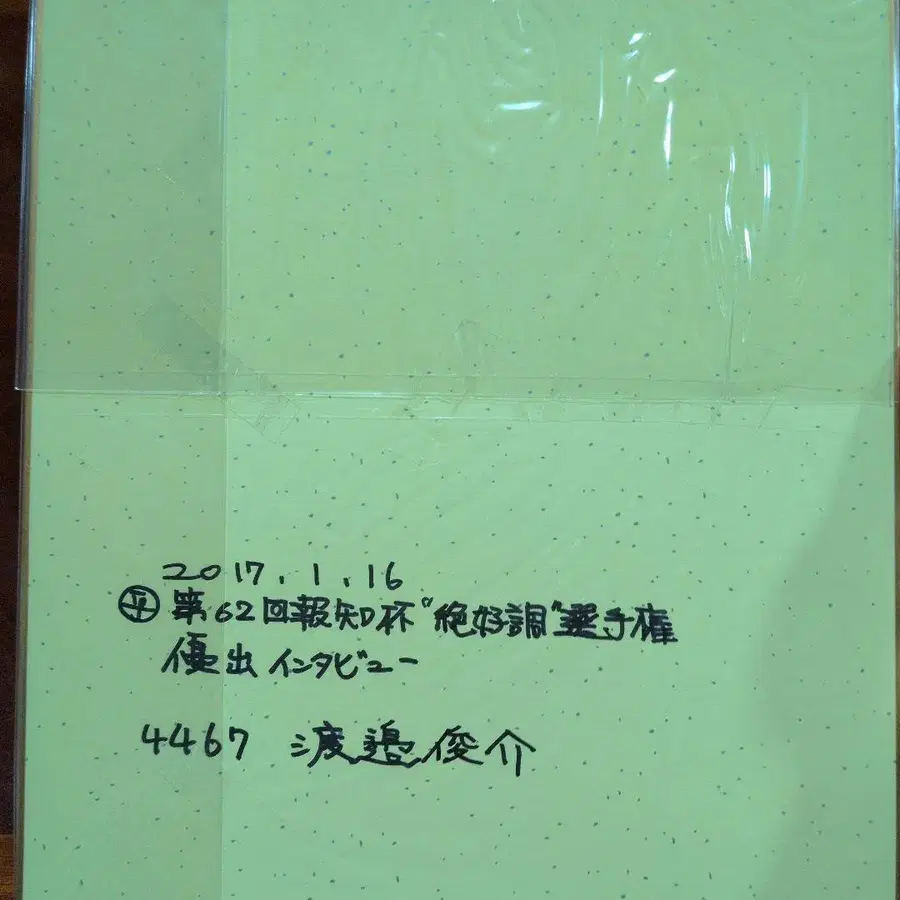 2017.1.16
㊥第62回報知杯"絶好調"選手権
優出インタビュー
4467 渡邉俊介